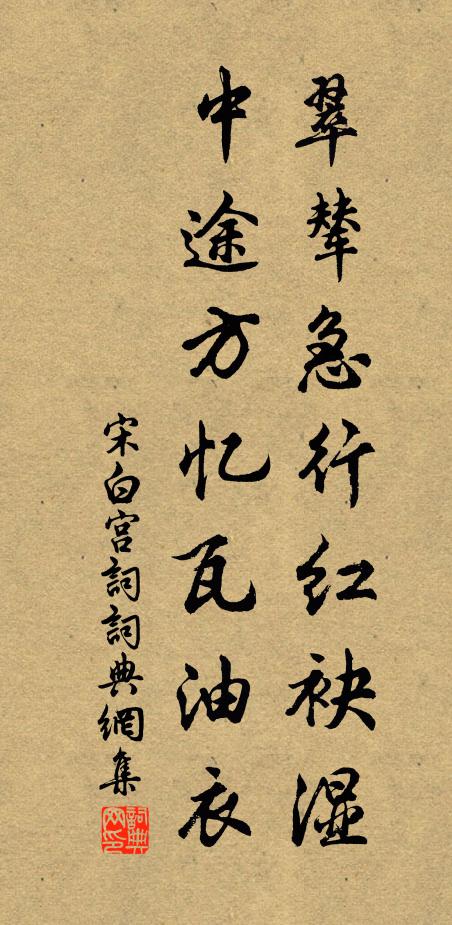 翠辇急行红袂湿
中途方忆瓦油衣
宋白宫詞詞典網集
詞典網印